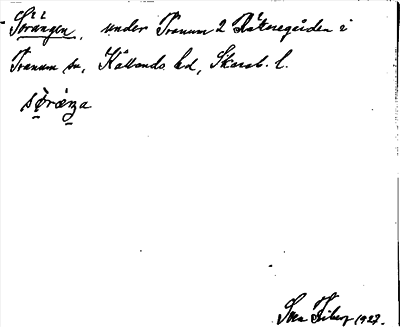 Störängen, under Tranum 2 Råknegården i
Tranum sn, Kållands hd, Skarab. l.
störæŋa
Sven Friberg 1927.